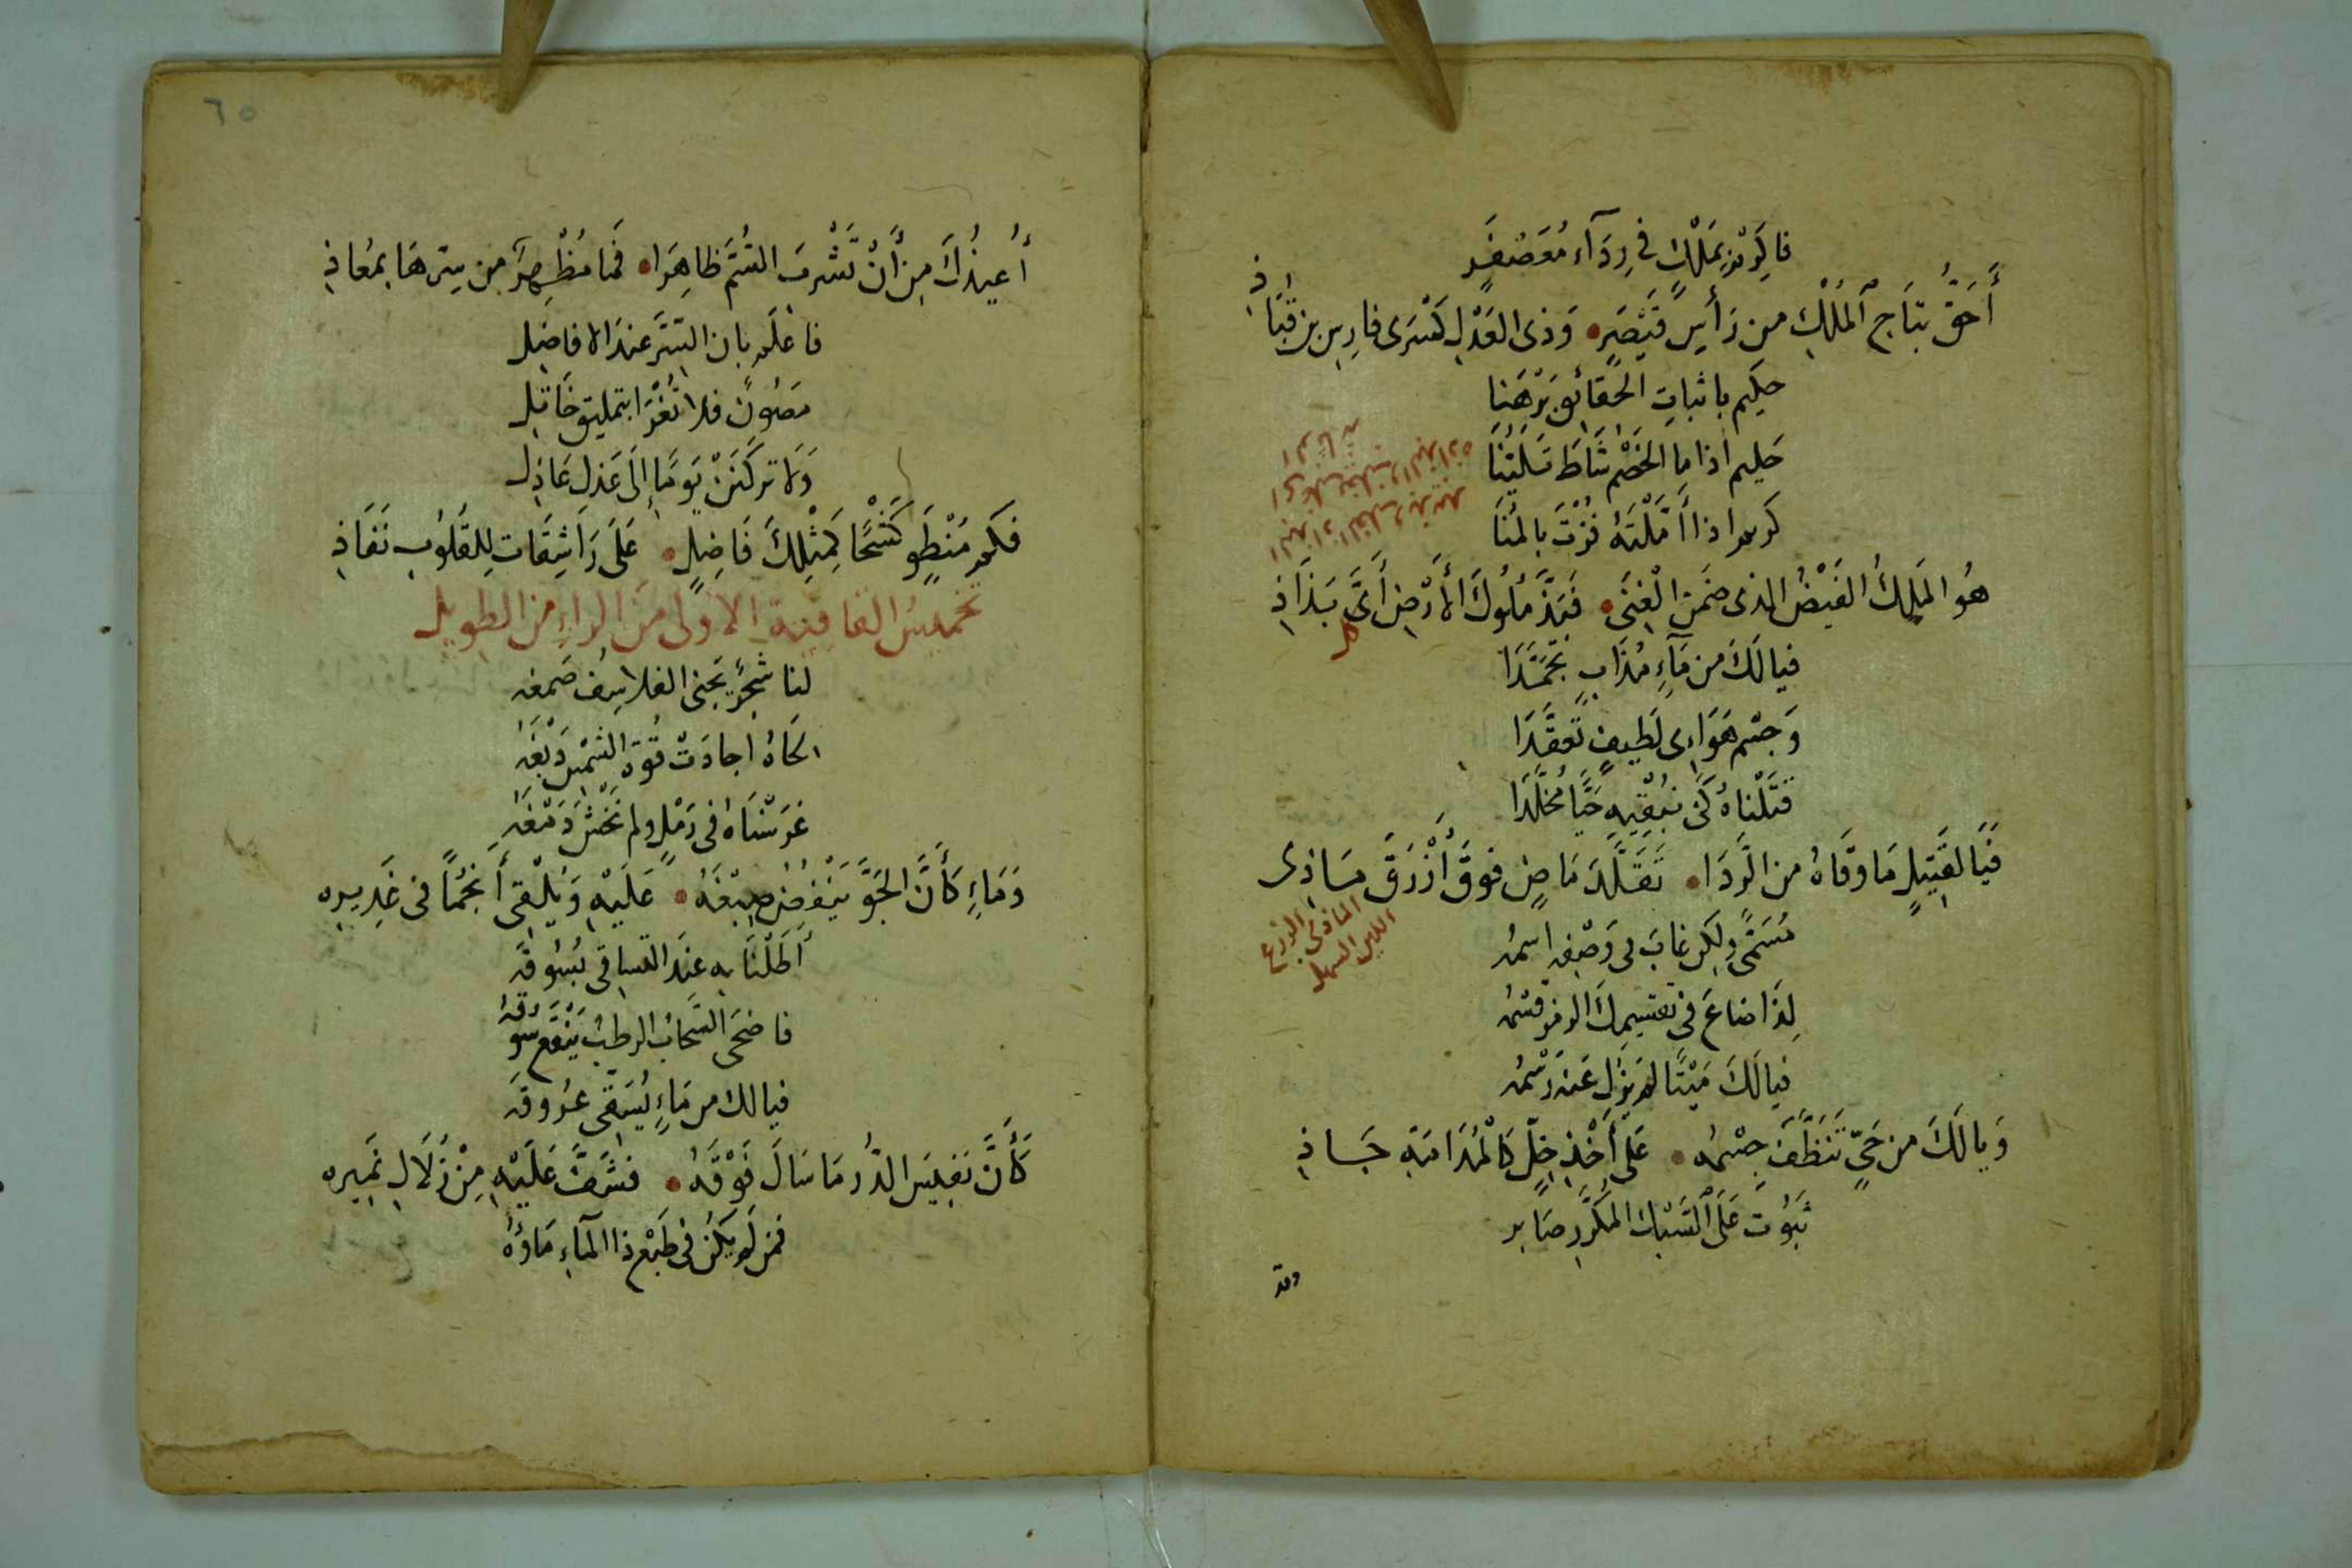 فاكرم بملك في ردآء معصفر
أَحَقُّ بتاج الملك من رأس قيصر • وذى العدل كسرى فارس بن قباذ
حكيم باثبات الحقائق برهنا
حليم اذا ما الخصم شاط تليّنا
كريم اذا أمّلته فزت بالمنا
هو الملك الفيض الذى ضمن الغنى • فبذّ ملوك الأرض أىّ بذاذ
فيالك من مآءٍ مذاب تجمّدا
وجسم هواءى لطيف تعقّدا
قتلناه كى نبقيه حيّا مخلّدا
فيا لقتيل ما وقاه من الردا • تقلّد ماض فوق أزرق ماذى
الماذى الدرع
اللين السهل
مسمّى ولكن غاب فى وصفه اسمه
لذا ضاع فى تقسيمك الرمز قسمه
فيالك ميتا لم يزل عنه رسمه
ويالك من حىّ تنظّف جسمه • على أخذ خلّ كالمدامة جاذ
ثبوت على السبك المكرر صابر
وقد
٦٥
أُعيذك من أن تشرب السّم ظاهرا • فما مُظهر من سرّها بمعاذ
فاعلم بان السّر عند الافاضل
مصون فلا تغترا بتمليق خاتل
ولا تركنن يوما إلى عذل عاذل
فكم منطو كشحا لمثلك فاضل • على راشقات للقلوب نفاذ
تخميس القافية الاولى من الراء من الطويل
لنا شجر يجنى الفلاسف صمغه
لحاه اجادت قوة الشمس دبغه
غرسناه فى رمل ولم نخش دمغه
وماءٍ كأنّ الجوّ ينفض صبغه • عليه ويلقى أنجما فى غديره
أطلنا به عند التساقى بسوقه
فاضحى السّحاب الرطب ينقع سوقه
فيالك من ماءٍ يسقّى عروقه
كأنّ نفيس الدّر ما سال فوقه • فشفّ عليه من زلال نميره
فمن لم يكن فى طبع ذا المآء ماؤه